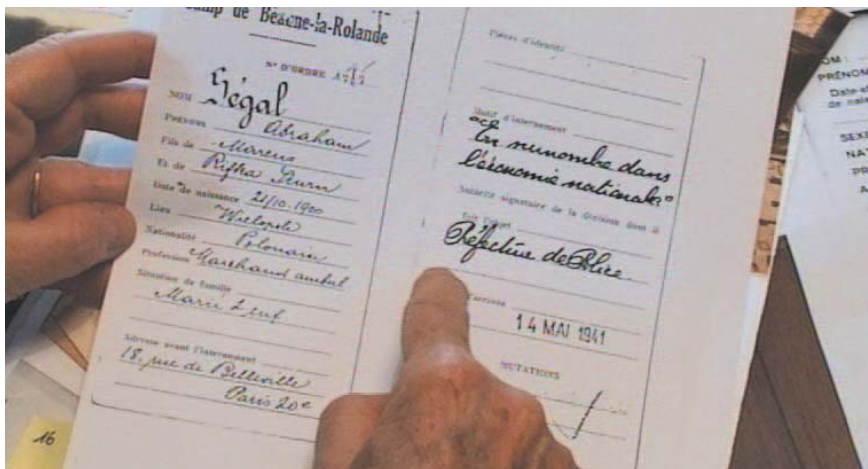 Camp de Beaune-la-Rolande
N° D'ORDRE
NOM Ségal
Prénoms Abraham
Fils de Marcus
Et de Rifka
Date de naissance 21/10.1900
Lieu Wielopole
Nationalité Polonaise
Profession Marchand ambul
Situation de famille
Marié 2 enf
Adresse avant l'internement
18, rue de Belleville
Paris 20e
Pièces d'identité
Motif d'internement
"En surnombre dans
l'économie nationale"
Autorité signataire de la décision dont il
fait l'objet
Préfecture de Police
d'arrivée
14 MAI 1941
MUTATIONS
16
NOM :
PRÉNOM
Date et
de nais
SEXE
NAT
PR
A